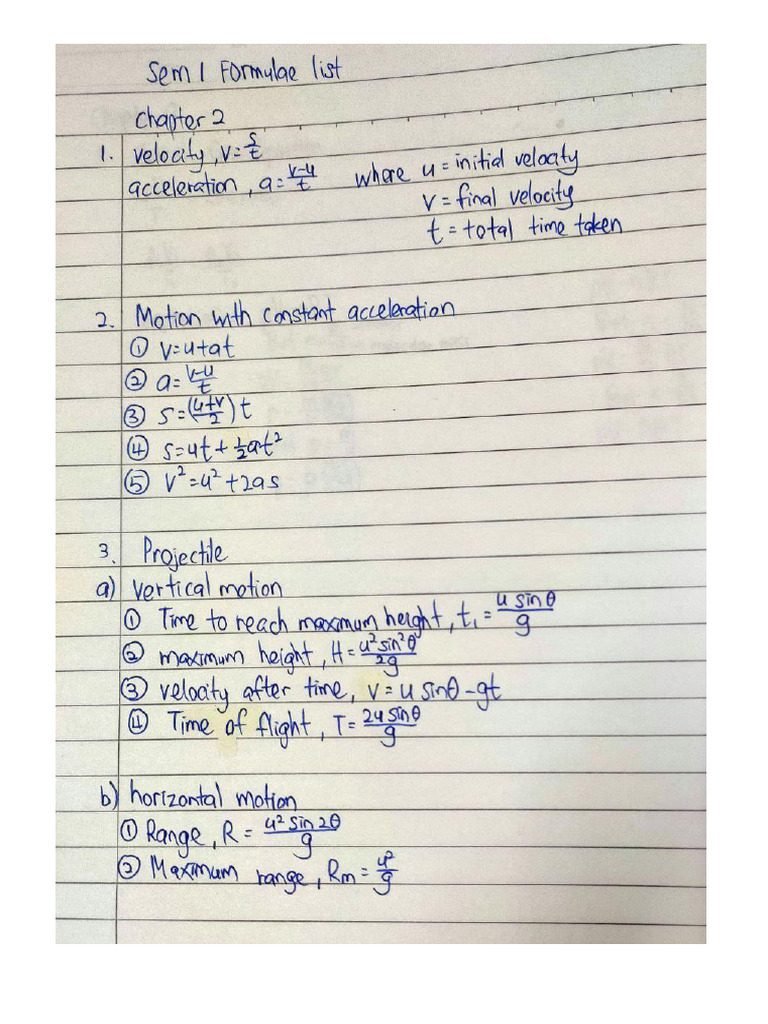 Sem 1 Formulae list
Chapter 2
1. velocity, v = s/t
acceleration, a = v-u/t where u = initial velocity
v = final velocity
t = total time taken
2. Motion with constant acceleration
① v=u+at
② a = v-u/t
③ s = (u+v/2)t
④ s=ut + ½at²
⑤ v²=u²+2as
3. Projectile
a) vertical motion
① Time to reach maximum height, t₁ = u sinθ/g
② maximum height, H = u²sin²θ/2g
③ velocity after time, v = u sinθ - gt
④ Time of flight, T = 2u sinθ/g
b) horizontal motion
① Range, R = u² sin 2θ/g
② Maximum range, Rm = u²/g